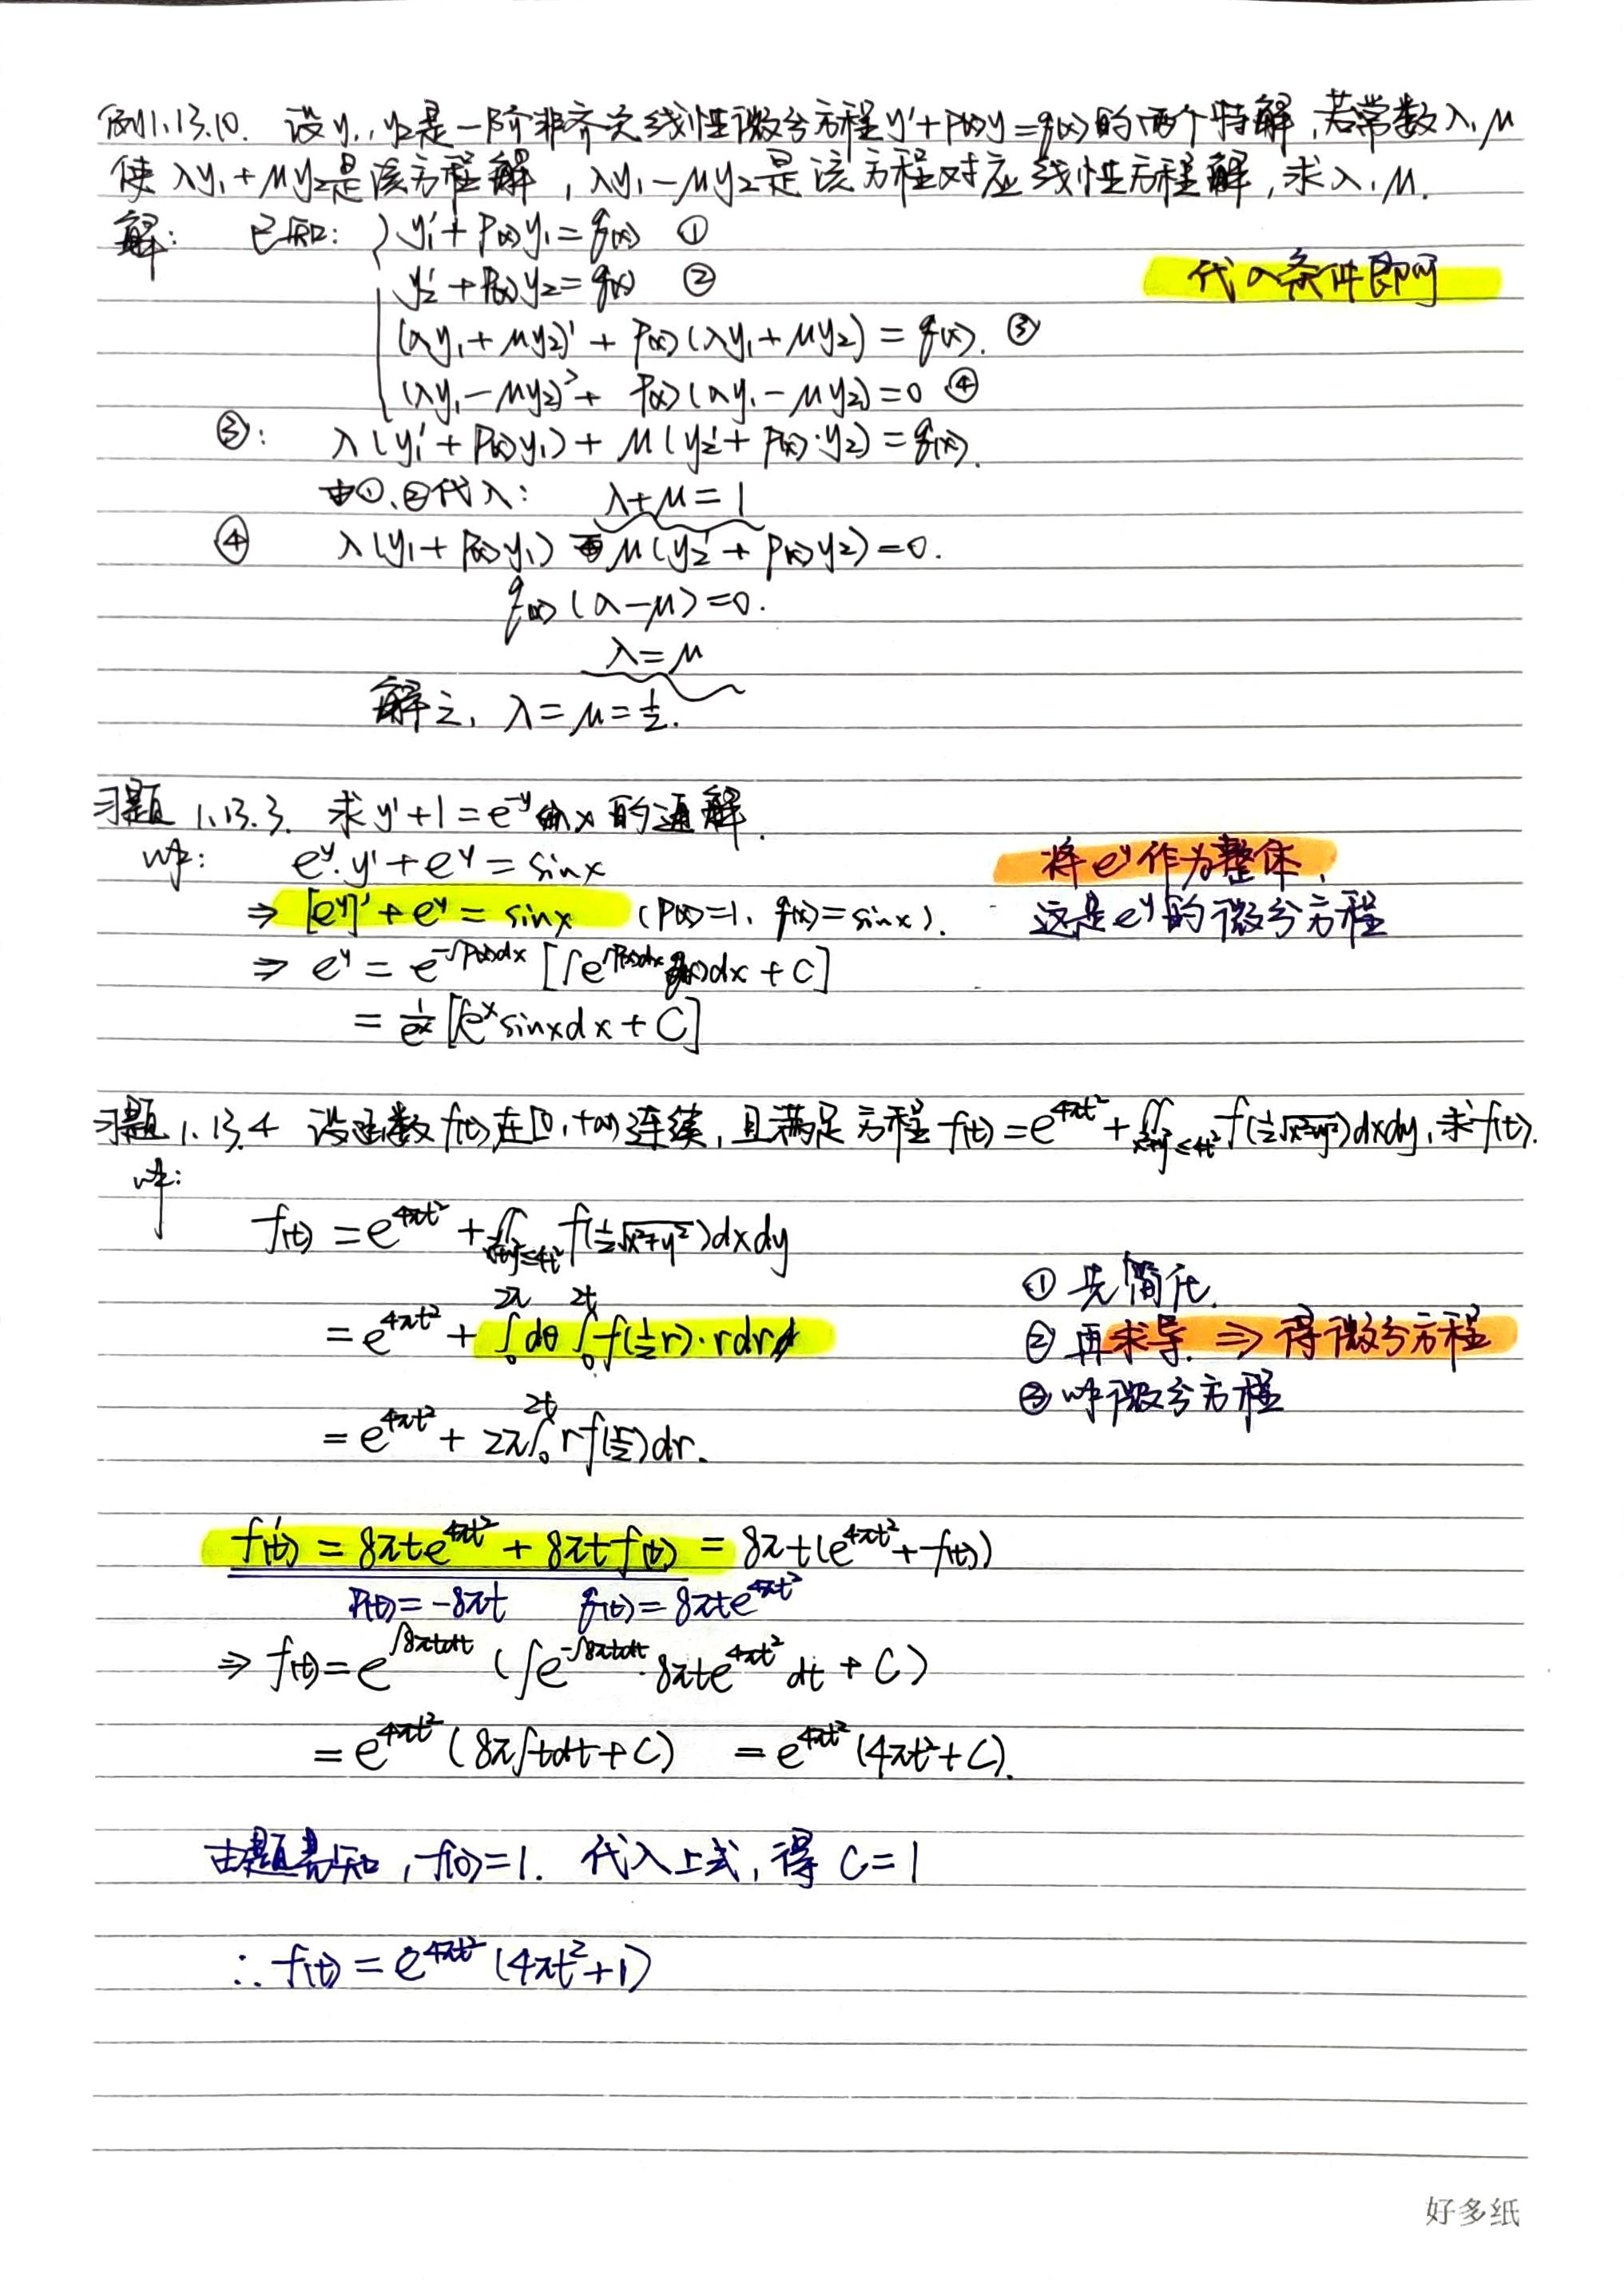 例1.13.10. 设y₁,y₂是一阶非齐次线性微分方程y'+P(x)y=q(x)的两个特解,若常数λ,μ
使λy₁+μy₂是该方程解,λy₁-μy₂是该方程对应线性方程解,求λ,μ.
解: 已知: { y₁'+P(x)y₁=q(x) ①
y₂'+P(x)y₂=q(x) ②
代入条件即可
(λy₁+μy₂)'+P(x)(λy₁+μy₂)=q(x). ③
(λy₁-μy₂)'+P(x)(λy₁-μy₂)=0 ④
③: λ(y₁'+P(x)y₁)+μ(y₂'+P(x)·y₂)=q(x).
由①,②代入: λ+μ=1
④ λ(y₁+P(x)y₁)-μ(y₂'+P(x)y₂)=0.
q(x)(λ-μ)=0.
λ=μ
解之, λ=μ=1/2.
习题 1.13.3. 求y'+1=e^{-y}sinx的通解.
解: e^y·y'+e^y=sinx
将e^y作为整体,
⇒ [e^y]'+e^y=sinx (P(x)=1, q(x)=sinx).
这是e^y的微分方程
⇒ e^y=e^{-∫P(x)dx}[∫e^{∫P(x)dx}q(x)dx+C]
=1/e^x[∫e^x sinxdx+C]
习题1.13.4 设函数f(t)在[0,+∞)连续,且满足方程f(t)=e^{4πt²}+∬_{x²+y²≤4t²}f(1/2√(x²+y²))dxdy,求f(t).
解:
f(t)=e^{4πt²}+∬_{x²+y²≤4t²}f(1/2√(x²+y²))dxdy
① 先简化.
=e^{4πt²}+∫₀^{2π}dθ∫₀^{2t}f(1/2r)·rdr
② 再求导. ⇒ 得微分方程
③ 解微分方程
=e^{4πt²}+2π∫₀^{2t}rf(r/2)dr.
f'(t)=8πte^{4πt²}+8πtf(t)=8πt(e^{4πt²}+f(t))
P(t)=-8πt q(t)=8πte^{4πt²}
⇒ f(t)=e^{∫8πtdt}(∫e^{-∫8πtdt}·8πte^{4πt²}dt+C)
=e^{4πt²}(8π∫tdt+C) =e^{4πt²}(4πt²+C).
由题意知,f(0)=1. 代入上式,得C=1
∴f(t)=e^{4πt²}(4πt²+1)
好多纸